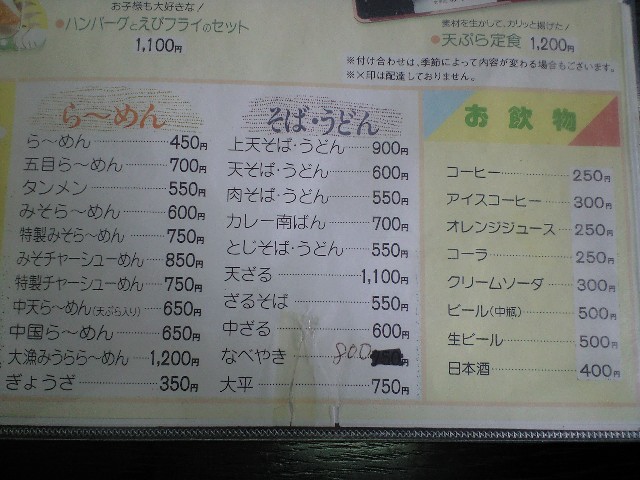 お子様も大好きな!
●ハンバーグとえびフライのセット
1,100円
素材を生かして、カリッと揚げた!
●天ぷら定食 1,200円
※付け合わせは、季節によって内容が変わる場合もございます。
※×印は配達しておりません。
ら〜めん
ら〜めん 450円
五目ら〜めん 700円
タンメン 550円
みそら〜めん 600円
特製みそら〜めん 750円
みそチャーシューめん 850円
特製チャーシューめん 750円
中天ら〜めん(天ぷら入り) 650円
中国ら〜めん 650円
大漁みうらら〜めん 1,200円
ぎょうざ 350円
そば・うどん
上天そば・うどん 900円
天そば・うどん 600円
肉そば・うどん 550円
カレー南ばん 700円
とじそば・うどん 550円
天ざる 1,100円
ざるそば 550円
中ざる 600円
なべやき 800円
大平 750円
お飲物
コーヒー 250円
アイスコーヒー 300円
オレンジジュース 250円
コーラ 250円
クリームソーダ 300円
ビール(中瓶) 500円
生ビール 500円
日本酒 400円